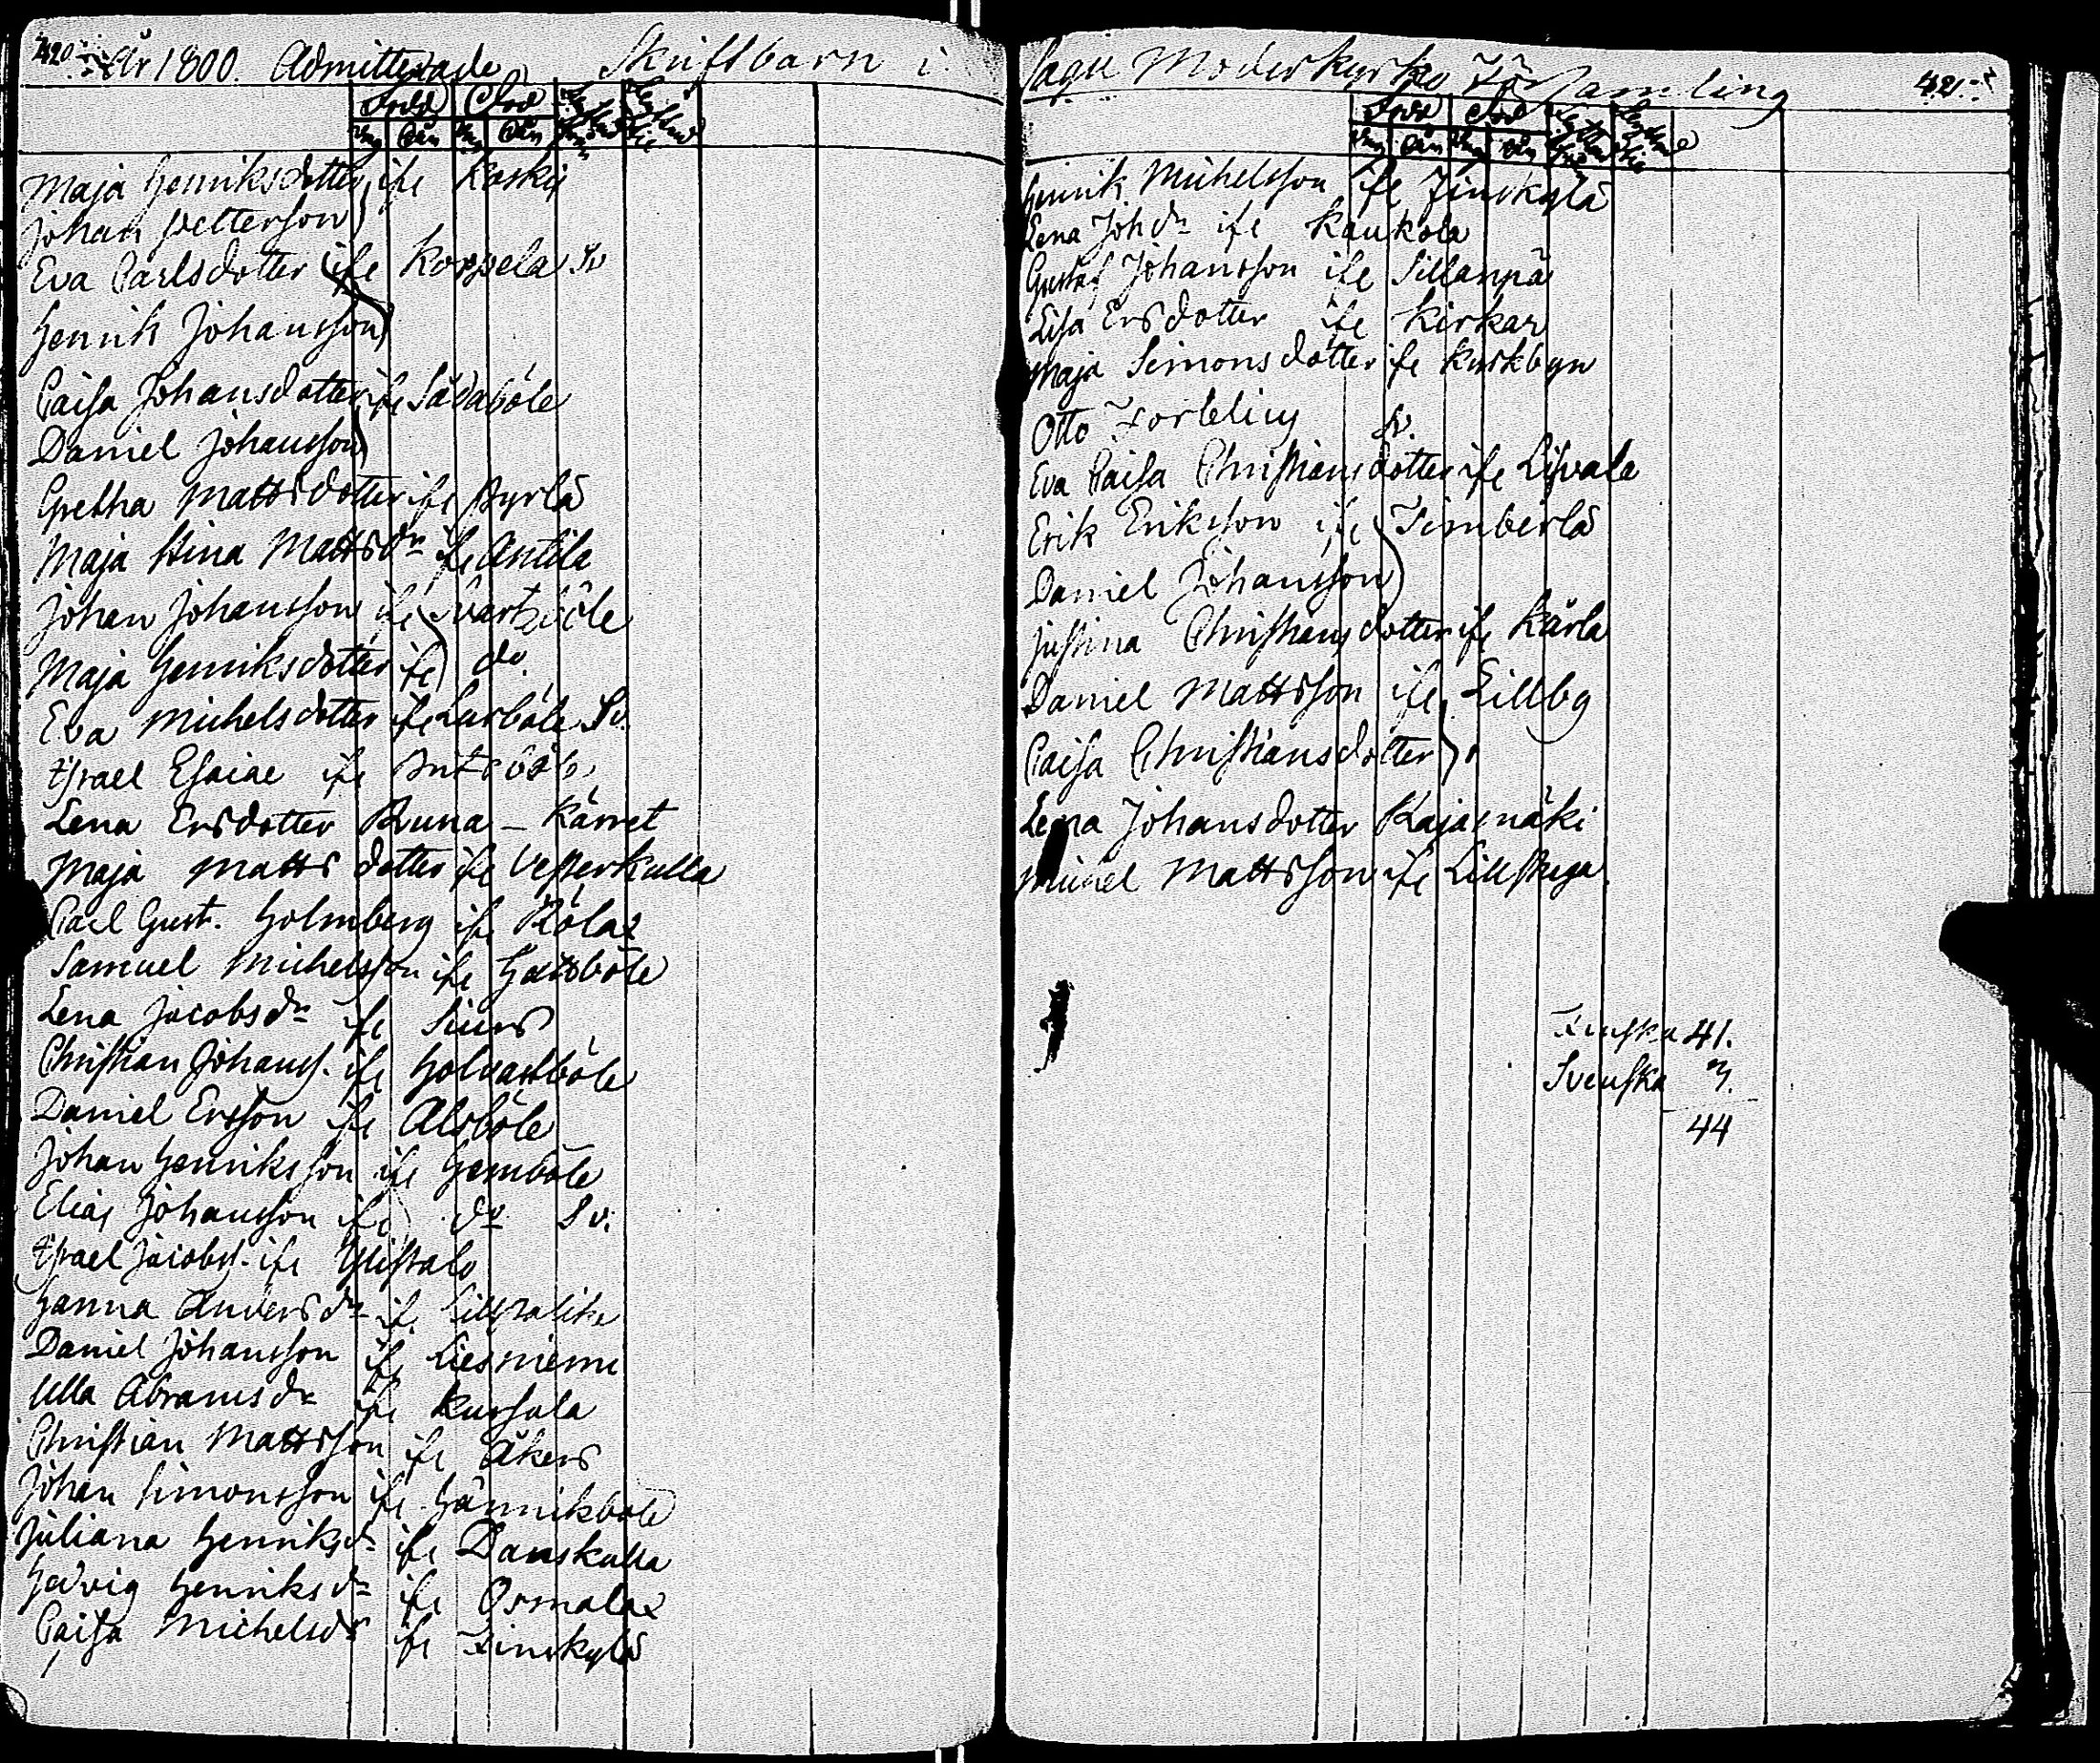 420.
År 1800. Admitterade Skriftbarn i
Maja Henriksdotter ifr Koskis
Johan Petterson
Eva Carlsdotter ifr Koppela Sv
Henrik Johansson
Caisa Johansdotter ifr Sådaböle
Daniel Johansson
Gretha Mattsdotter ifr Pyrlä
Maja Stina Mattsdr ifr Antila
Johan Johansson ifr Svartsböle
Maja Henriksdotter ifr do
Eva Michelsdotter ifr Larböle Sv.
Israel Esaiae ifr
Lena Ersdotter Kärret
Maja Mattsdotter ifr Vesterkulla
Carl Gust. Holmberg ifr Rölax
Samuel Michelsson ifr
Lena Jacobsdr ifr
Christian Johanss. ifr Holvastböle
Daniel Ersson ifr Alsböle
Johan Henriksson ifr Gemböle
Elias Johansson ifr do Sv.
Israel Jacobss. ifr Ylistalo
Hanna Andersdr ifr
Daniel Johansson ifr Liesniemi
Ulla Abramsdr ifr
Christian Mattsson ifr Åkers
Johan Simonsson ifr Hännikböle
Juliana Henriksdr ifr Danskulla
Hedvig Henriksdr ifr Osmalax
Caisa Michelsdr ifr Finskylä
421.
Sagu Moderkyrko Församling
Henrik Michelsson ifr Finskylä
Lena Johdr ifr Kaukola
Gustaf Johansson ifr Sillanpä
Lisa Ersdotter ifr Kirkar
Maja Simonsdotter ifr Kyrkbyn
Otto Forselius Sv.
Eva Caisa Christiansdotter ifr Lijvala
Erik Eriksson ifr Timberlä
Daniel Johansson
Justina Christiansdotter ifr Kärla
Daniel Mattsson ifr Lillby
Caisa Christiansdotter
Lena Johansdotter Kajamäki
Michel Mattsson ifr Lillstuga
Finska 41.
Svenska 3.
44